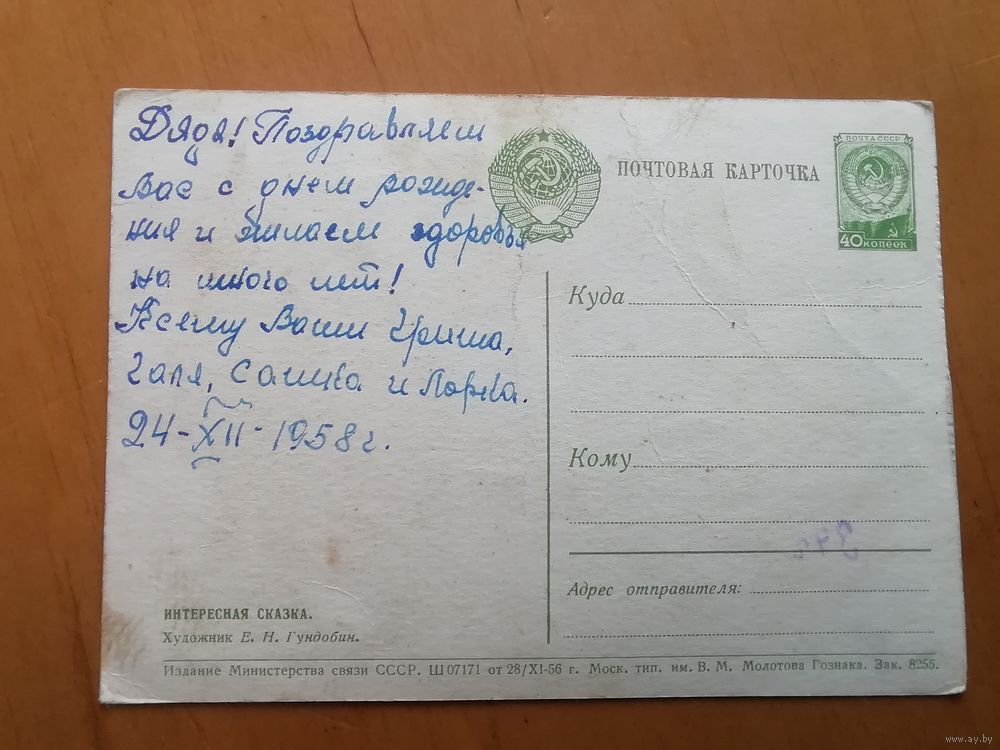 Дядя! Поздравляем
Вас с днем рожде-
ния и желаем здоровья
на много лет!
Ваши Гриша,
Галя, Сашка и Лорка.
24-XII-1958 г.
ПОЧТОВАЯ КАРТОЧКА
ПОЧТА СССР
40 КОПЕЕК
Куда
Кому
Адрес отправителя:
ИНТЕРЕСНАЯ СКАЗКА.
Художник Е. Н. Гундобин.
Издание Министерства связи СССР. Ш 07171 от 28/XI-56 г. Моск. тип. им. В. М. Молотова Гознака. Зак. 8255.
www.ay.by